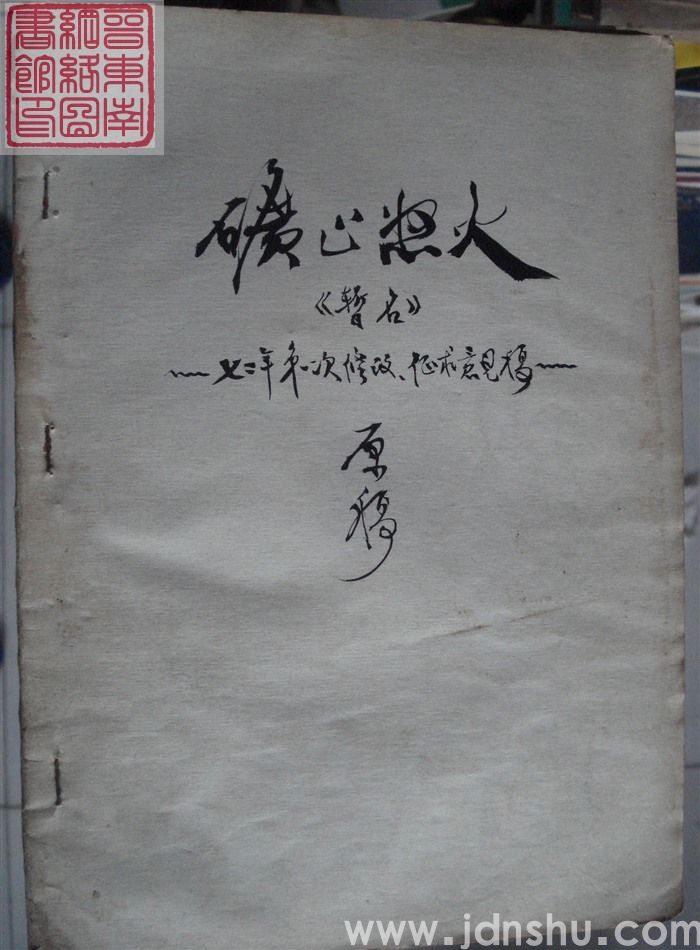 晉東南
網絡圖
書館印
礦山怒火
《暫名》
~~七二年第一次修改、征求意見稿~~
原稿
www.jdnshu.com